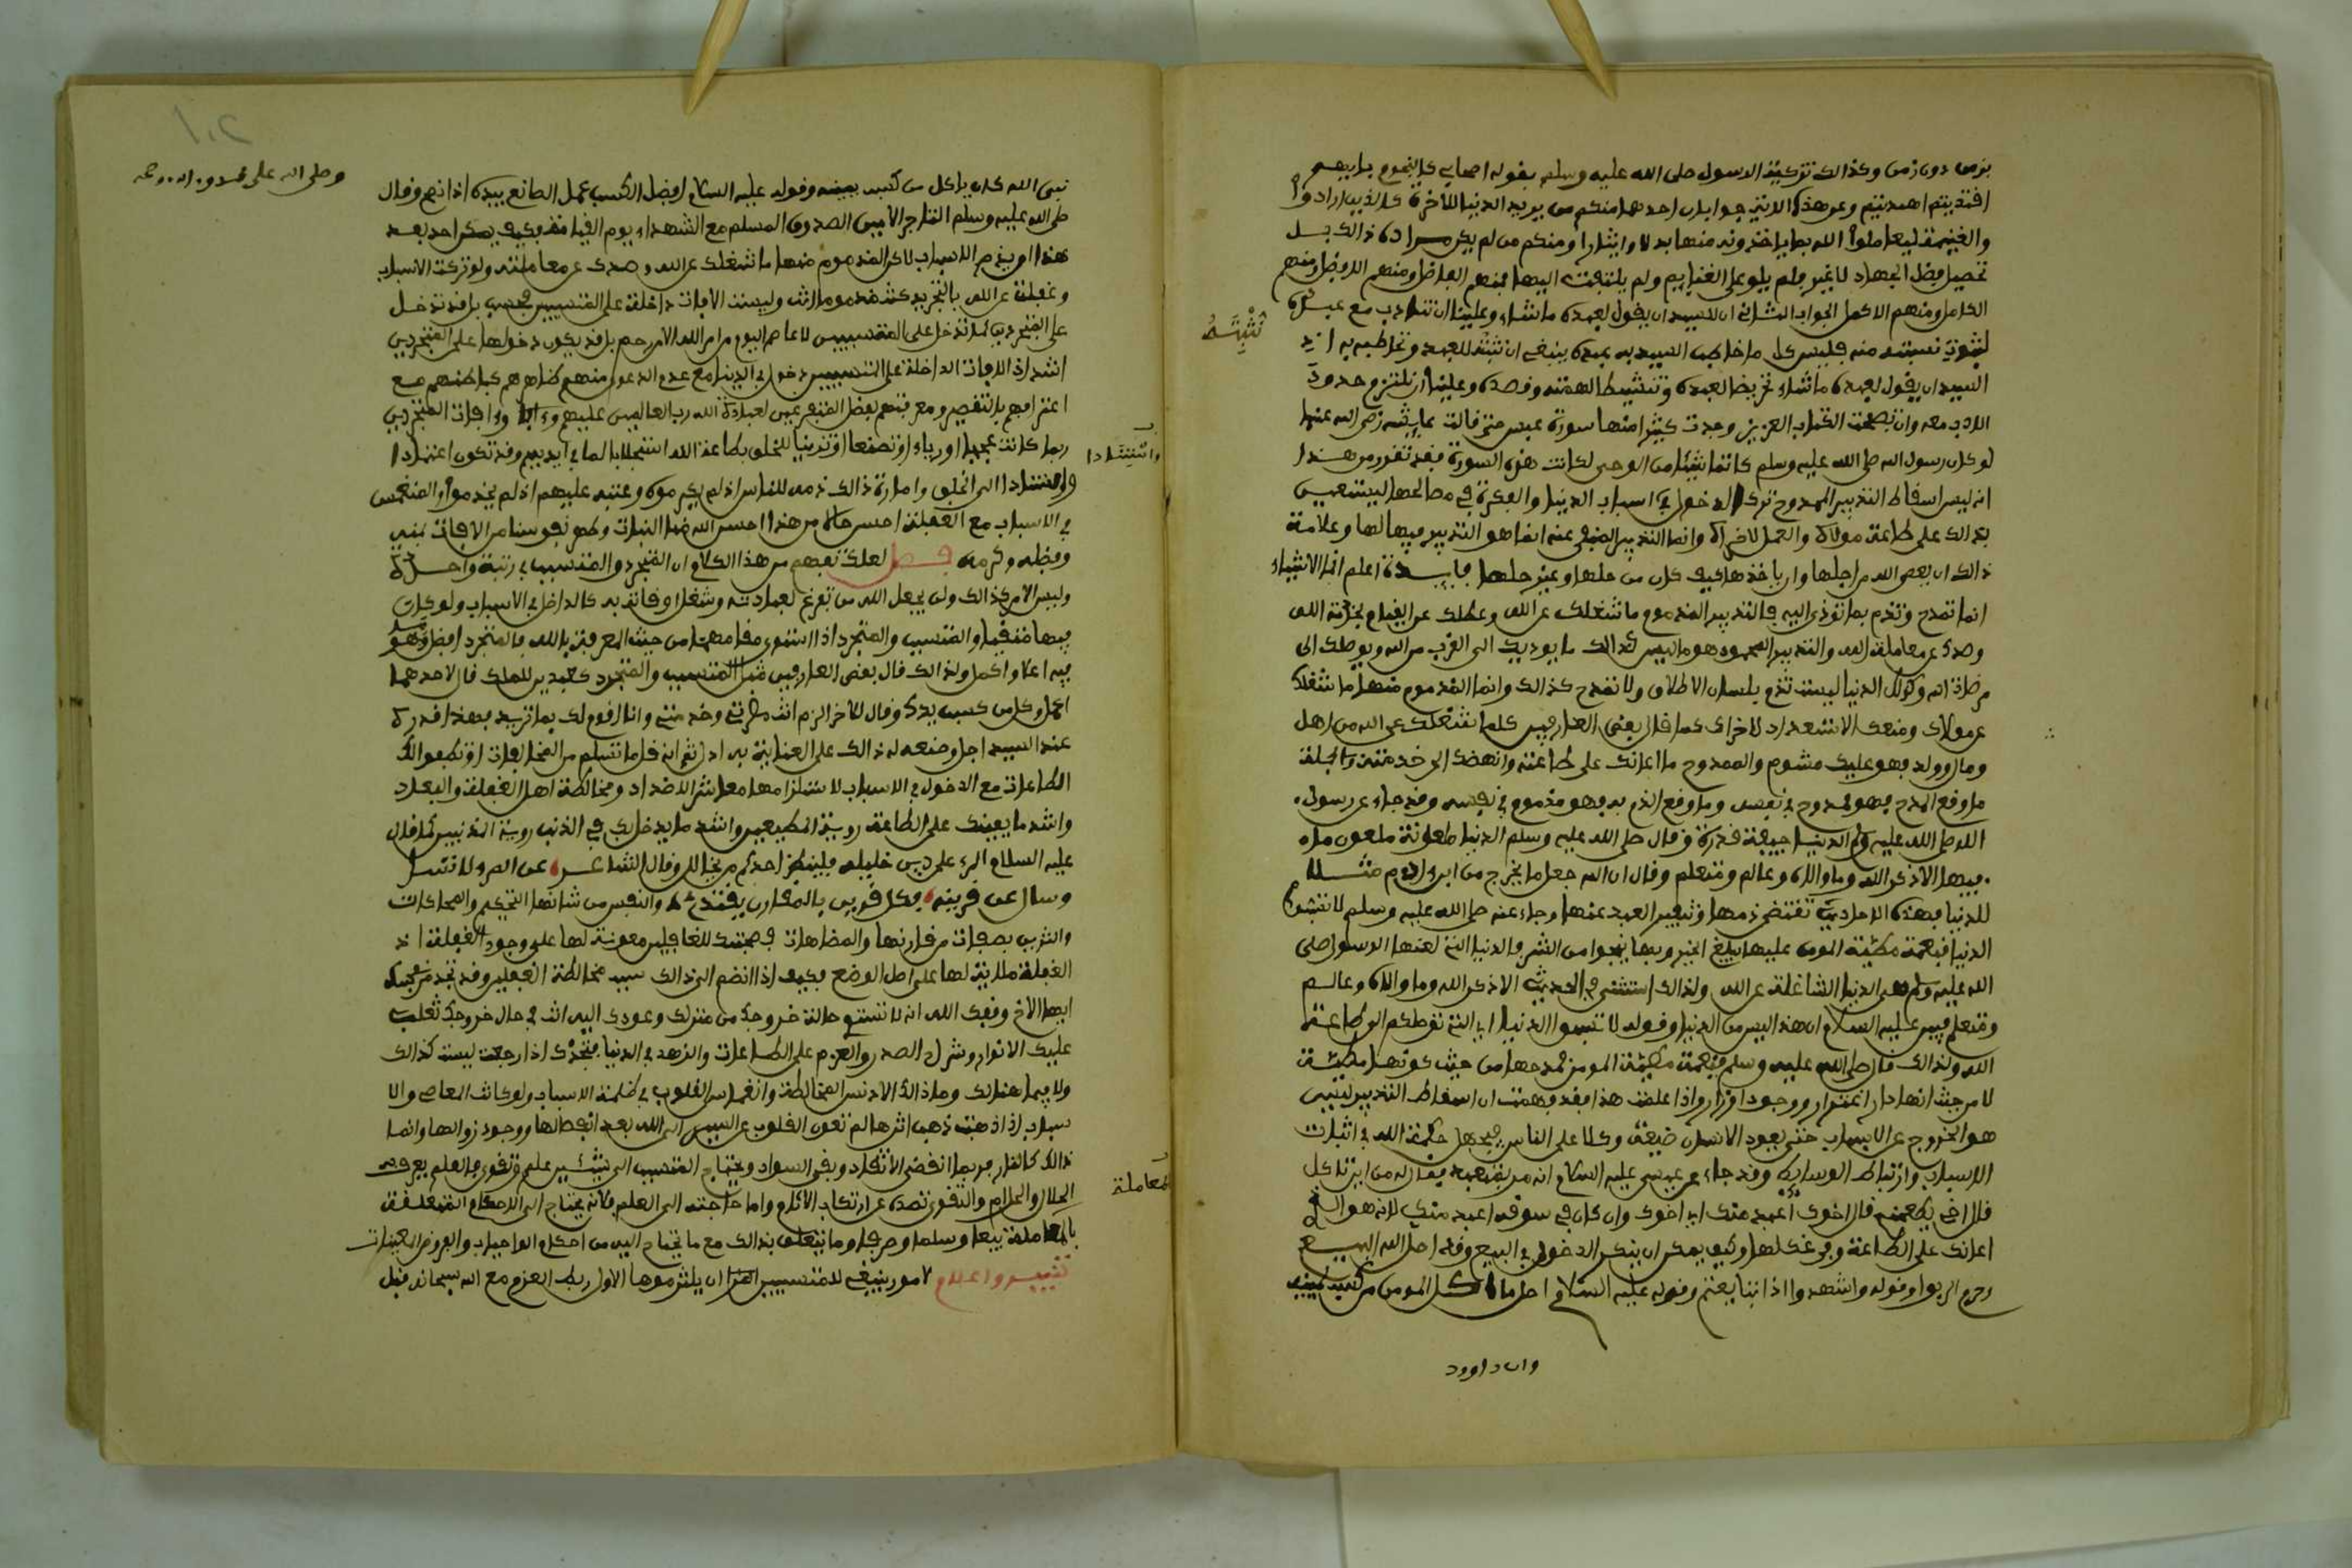 بزمن دون زمن وكذالك تزكية الرسول صلى الله عليه وسلم بقوله اصحابي كالنجوم بايهم
اقتديتم اهتديتم وعن هذه الاية جوابان احدهما منكم من يريد الدنيا للاخرة كالذين ارادوا
والغنيمة ليعاملوا الله بما ياخذونه منها بذلا وايثارا ومنكم من لم يكن مراده ذالك بل
تحصيل فضل الجهاد لا غير فلم يلو على الغنايم ولم يلتفت اليها فمنهم الفاضل ومنهم الافضل ومنهم
الكامل ومنهم الاكمل الجواب الثاني ان للسيد ان يقول لعبده ما شاء وعلينا ان نتادب مع عبده
لثبوت نسبته منه فليس كل ما خاطب السيد به عبده ينبغي ان نثبته للعبد ونخاطبه به اذ
تثبته
السيد ان يقول لعبده ما شاء تحريضا لعبده وتنشيطا لهمته وقصده وعلينا ان نلتزم حدود
الادب معه وان تصفحت الكتاب العزيز وجدت كثيرا منها سورة عبس حتى قالت عايشة رضي الله عنها
لو كان رسول الله صلى الله عليه وسلم كاتما شيئا من الوحي لكانت هذه السورة فقد تقرر من هذا
انه ليس اسقاط التدبير الممدوح ترك الدخول في اسباب الدنيا والفكرة في مصالحها ليستعين
بذالك على طاعة مولاه والعمل لاخراه وانما التدبير المنهي عنه انما هو التدبير فيها لها وعلامة
ذالك ان يعصي الله من اجلها وان ياخذها كيف كان من حلها وغير حلها فايدة اعلم ان الاشياء
انما تمدح وتذم بما توذي اليه فالتدبير المذموم ما شغلك عن الله وعطلك عن القيام بخدمة الله
وصدك عن معاملة الله والتدبير المحمود هو ما ليس كذالك ما يوديك الى القرب من الله ويوصلك الى
مرضاة الله وكذلك الدنيا ليست تذم بلسان الاطلاق ولا تمدح كذالك وانما المذموم منها ما شغلك
عن مولاك ومنعك الاستعداد لاخراك كما قال بعض العارفين كلما شغلك عن الله من اهل
ومال وولد فهو عليك مشوم والممدوح ما اعانك على طاعته وانهضك الى خدمته وبالجملة
ما وقع المدح فهو ممدوح في نفسه وما وقع الذم به فهو مذموم في نفسه وقد جاء عن رسول
الله صلى الله عليه وسلم الدنيا جيفة قذرة وقال صلى الله عليه وسلم الدنيا ملعونة ملعون ما
فيها الا ذكر الله وما والاه وعالم ومتعلم وقال ان الله جعل ما يخرج من ابن ادم مثلا
للدنيا فهذه الاحاديث تقتضي ذمها وتنفير العبد عنها وجاء عنه صلى الله عليه وسلم لا تسبوا
الدنيا فنعمة مطية المومن عليها يبلغ الخير وبها ينجوا من الشر فالدنيا التي لعنها الرسول صلى
الله عليه وسلم هي الدنيا الشاغلة عن الله ولذالك استثنى في الحديث الا ذكر الله وما والاه وعالم
ومتعلم فبين عليه السلام ان هذا ليس من الدنيا وقوله لا تسبوا الدنيا اي التي توصلكم الى طاعة
الله ولذالك قال صلى الله عليه وسلم فنعمة مطية المومن فمدحها من حيث كونها مطية
لا من حيث انها دار اغترار ووجود اوزار واذا علمت هذا فقد فهمت ان اسقاط التدبير ليس
هو الخروج عن الاسباب حتى يعود الانسان ضيعة وكلا على الناس فيجهل حكمة الله في اثبات
الاسباب وارتباط الوسايط وقد جاء عن عيسى عليه السلام انه مر بمتعبد فقال له من اين تاكل
قال اخي يطعمني قال اخوك اعبد منك اي اخوك وان كان في سوقه اعبد منك لانه هو الذي
اعانك على الطاعة وفرغك لها وكيف يمكن ان ينكر الدخول في البيع وقد احل الله البيع
وحرم الربوا وقوله واشهدوا اذا تبايعتم وقوله عليه السلام احل ما اكل المومن من كسب يمينه
وان داوود
١٠٢
وصلى الله على
نبي الله كان ياكل من كسب يمينه وقوله عليه السلام افضل الكسب عمل الصانع بيده اذا نصح وقال
صلى الله عليه وسلم التاجر الامين الصدوق المسلم مع الشهداء يوم القيامة فكيف يمكن احد بعد
هذا ان يذم الاسباب لاكن المذموم منها ما شغلك عن الله وصدك عن معاملته ولو تركت الاسباب
وغفلت عن الله بالتجريد كنت مذموما انت وليست الافات داخلة على المتسببين فحسب بل قد تدخل
على المتجردين كما تدخل على المتسببين لا عاصم اليوم من امر الله الا من رحم بل قد يكون دخولها على المتجردين
اشد اذ الافات الداخلة على المتسببين دخول في الدنيا مع عدم الدعوى منهم ظاهرهم كباطنهم مع
اعترافهم بالتقصير ومعرفتهم بفضل المتفرغين لعبادة الله رب العالمين عليهم وافات المتجردين
ربما كانت عجبا او رياء او تصنعا او تزينا للخلق بطاعة الله استجلابا لما في ايديهم وقد تكون اعتمادا
واستنادا
واستنادا الى الخلق وامارة ذالك ذمه للناس اذ لم يكرموه وعتبه عليهم اذ لم يخدموه والمنغمس
في الاسباب مع الغفلة احسن حالا من هذا احسن الله لنا النيات وطهر نفوسنا من الافات بمنه
وفضله وكرمه فصل لعلك تفهم من هذا الكلام ان المتجرد والمتسبب في رتبة واحدة
وليس الامر كذالك ولن يجعل الله من تفرغ لعبادته وشغل اوقاته به كالداخل في الاسباب ولو كان
فيها متقيا والمتسبب والمتجرد اذا استوى مقامهما من حيث المعرفة بالله فالمتجرد افضل وما هو
فيه اعلا واكمل ولذالك قال بعض العارفين مثل المتسبب والمتجرد كعبدين للملك قال لاحدهما
اعمل وكل من كسب يدك وقال للاخر الزم انت حضرتي وخدمتي وانا اقوم لك بما تريد فهذا قدره
عند السيد اجل وصنعه له ذالك على العناية به ادل ثم انه قلما تسلم من المخالفات او تصفوا لك
الطاعات مع الدخول في الاسباب لاستلزامها معاشرة الاضداد ومخالطة اهل الغفلة والبعاد
واشد ما يعينك على الطاعة روية المطيعين واشد ما يدخلك في الذنب روية المذنبين كما قال
عليه السلام المرء على دين خليله فلينظر احدكم من يخالل وقال الشاعر عن المرء لا تسل
وسل عن قرينه فكل قرين بالمقارن يقتدي والنفس من شانها التحكم والمحاكات
والتزين بصفات من قارنها والمضاهات فصحبتك للغافلين معونة لها على وجود الغفلة اذ
الغفلة ملايمة لها على اصل الوضع فكيف اذا انضم الى ذالك سبب مخالطة الغافلين وقد تجد من نفسك
ايها الاخ وفقك الله انه لا تستوي حالة خروجك من منزلك وعودك اليه انت في حال خروجك تغلب
عليك الانوار وشرح الصدر والعزم على الطاعات والزهد في الدنيا فتجدك اذا رجعت ليست كذالك
ولا فيما هنالك وما ذالك الا لدنس المخالطة وانغماس القلوب في ظلمة الاسباب ولو كانت المعاصي والا
سباب اذا ذهبت ذهب اثرها لم تعق القلوب عن السير الى الله بعد انفصالها ووجود زوالها وانما
ذالك كالنار فربما انقضى الاتقاد وبقي السواد ويحتاج المتسبب الى شيئين علم وتقوى فالعلم يعرفه
الحلال والحرام والتقوى تصده عن ارتكاب الاثام واما حاجته الى العلم فلانه يحتاج الى الاحكام المتعلقة
المعاملة
بالمعاملة بيعا وسلما وصرفا وما يتعلق بذالك مع ما يحتاج اليه من احكام الواجبات والفروض العينيات
تنبيه واعلام امور ينبغي للمتسببين ان يلتزموها الاول ربط العزم مع الله سبحانه قبل